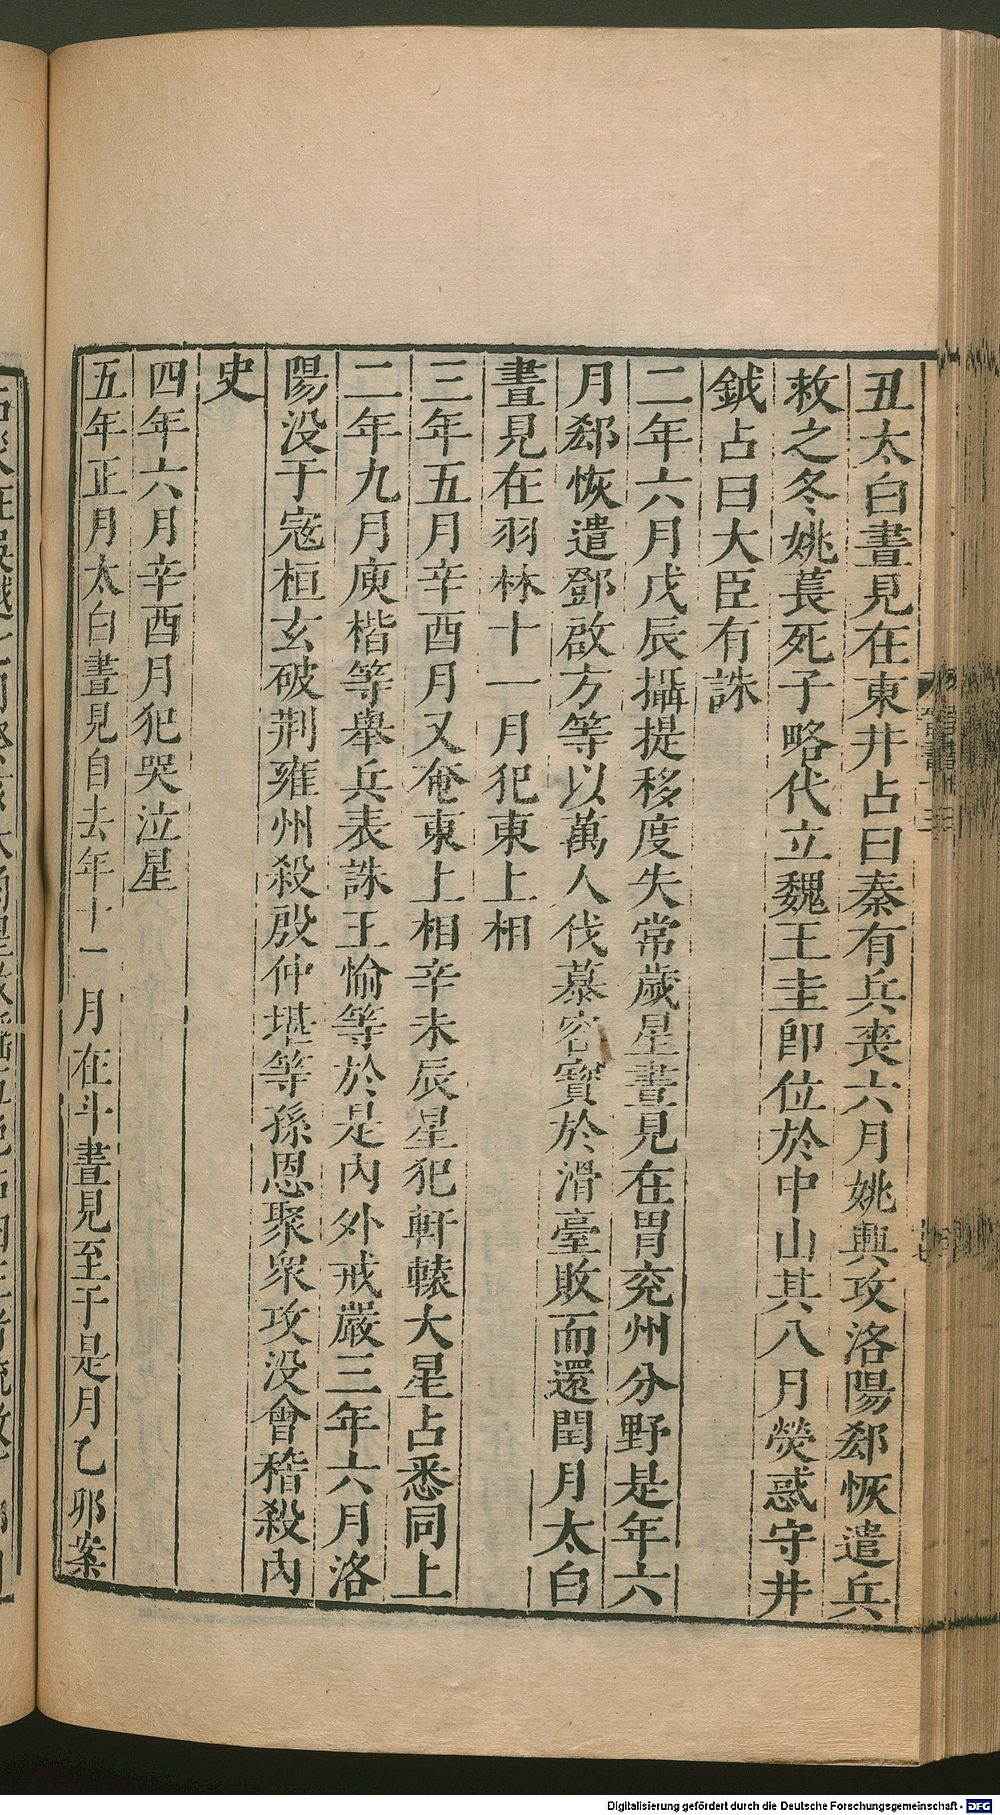 丑太白晝見在東井占曰秦有兵喪六月姚興攻洛陽郄恢遣兵
救之冬姚萇死子略代立魏王圭即位於中山其八月熒惑守井
鉞占曰大臣有誅
二年六月戊辰攝提移度失常歲星晝見在胃兖州分野是年六
月郄恢遣鄧啟方等以萬人伐慕容寶於滑臺敗而還閏月太白
晝見在羽林十一月犯東上相
三年五月辛酉月又奄東上相辛未辰星犯軒轅大星占悉同上
二年九月庾楷等舉兵表誅王愉等於是內外戒嚴三年六月洛
陽没于寇桓玄破荆雍州殺殷仲堪等孫恩聚衆攻没會稽殺內
史
四年六月辛酉月犯哭泣星
五年正月太白晝見自去年十一月在斗晝見至于是月乙卯案
Digitalisierung gefördert durch die Deutsche Forschungsgemeinschaft - DFG